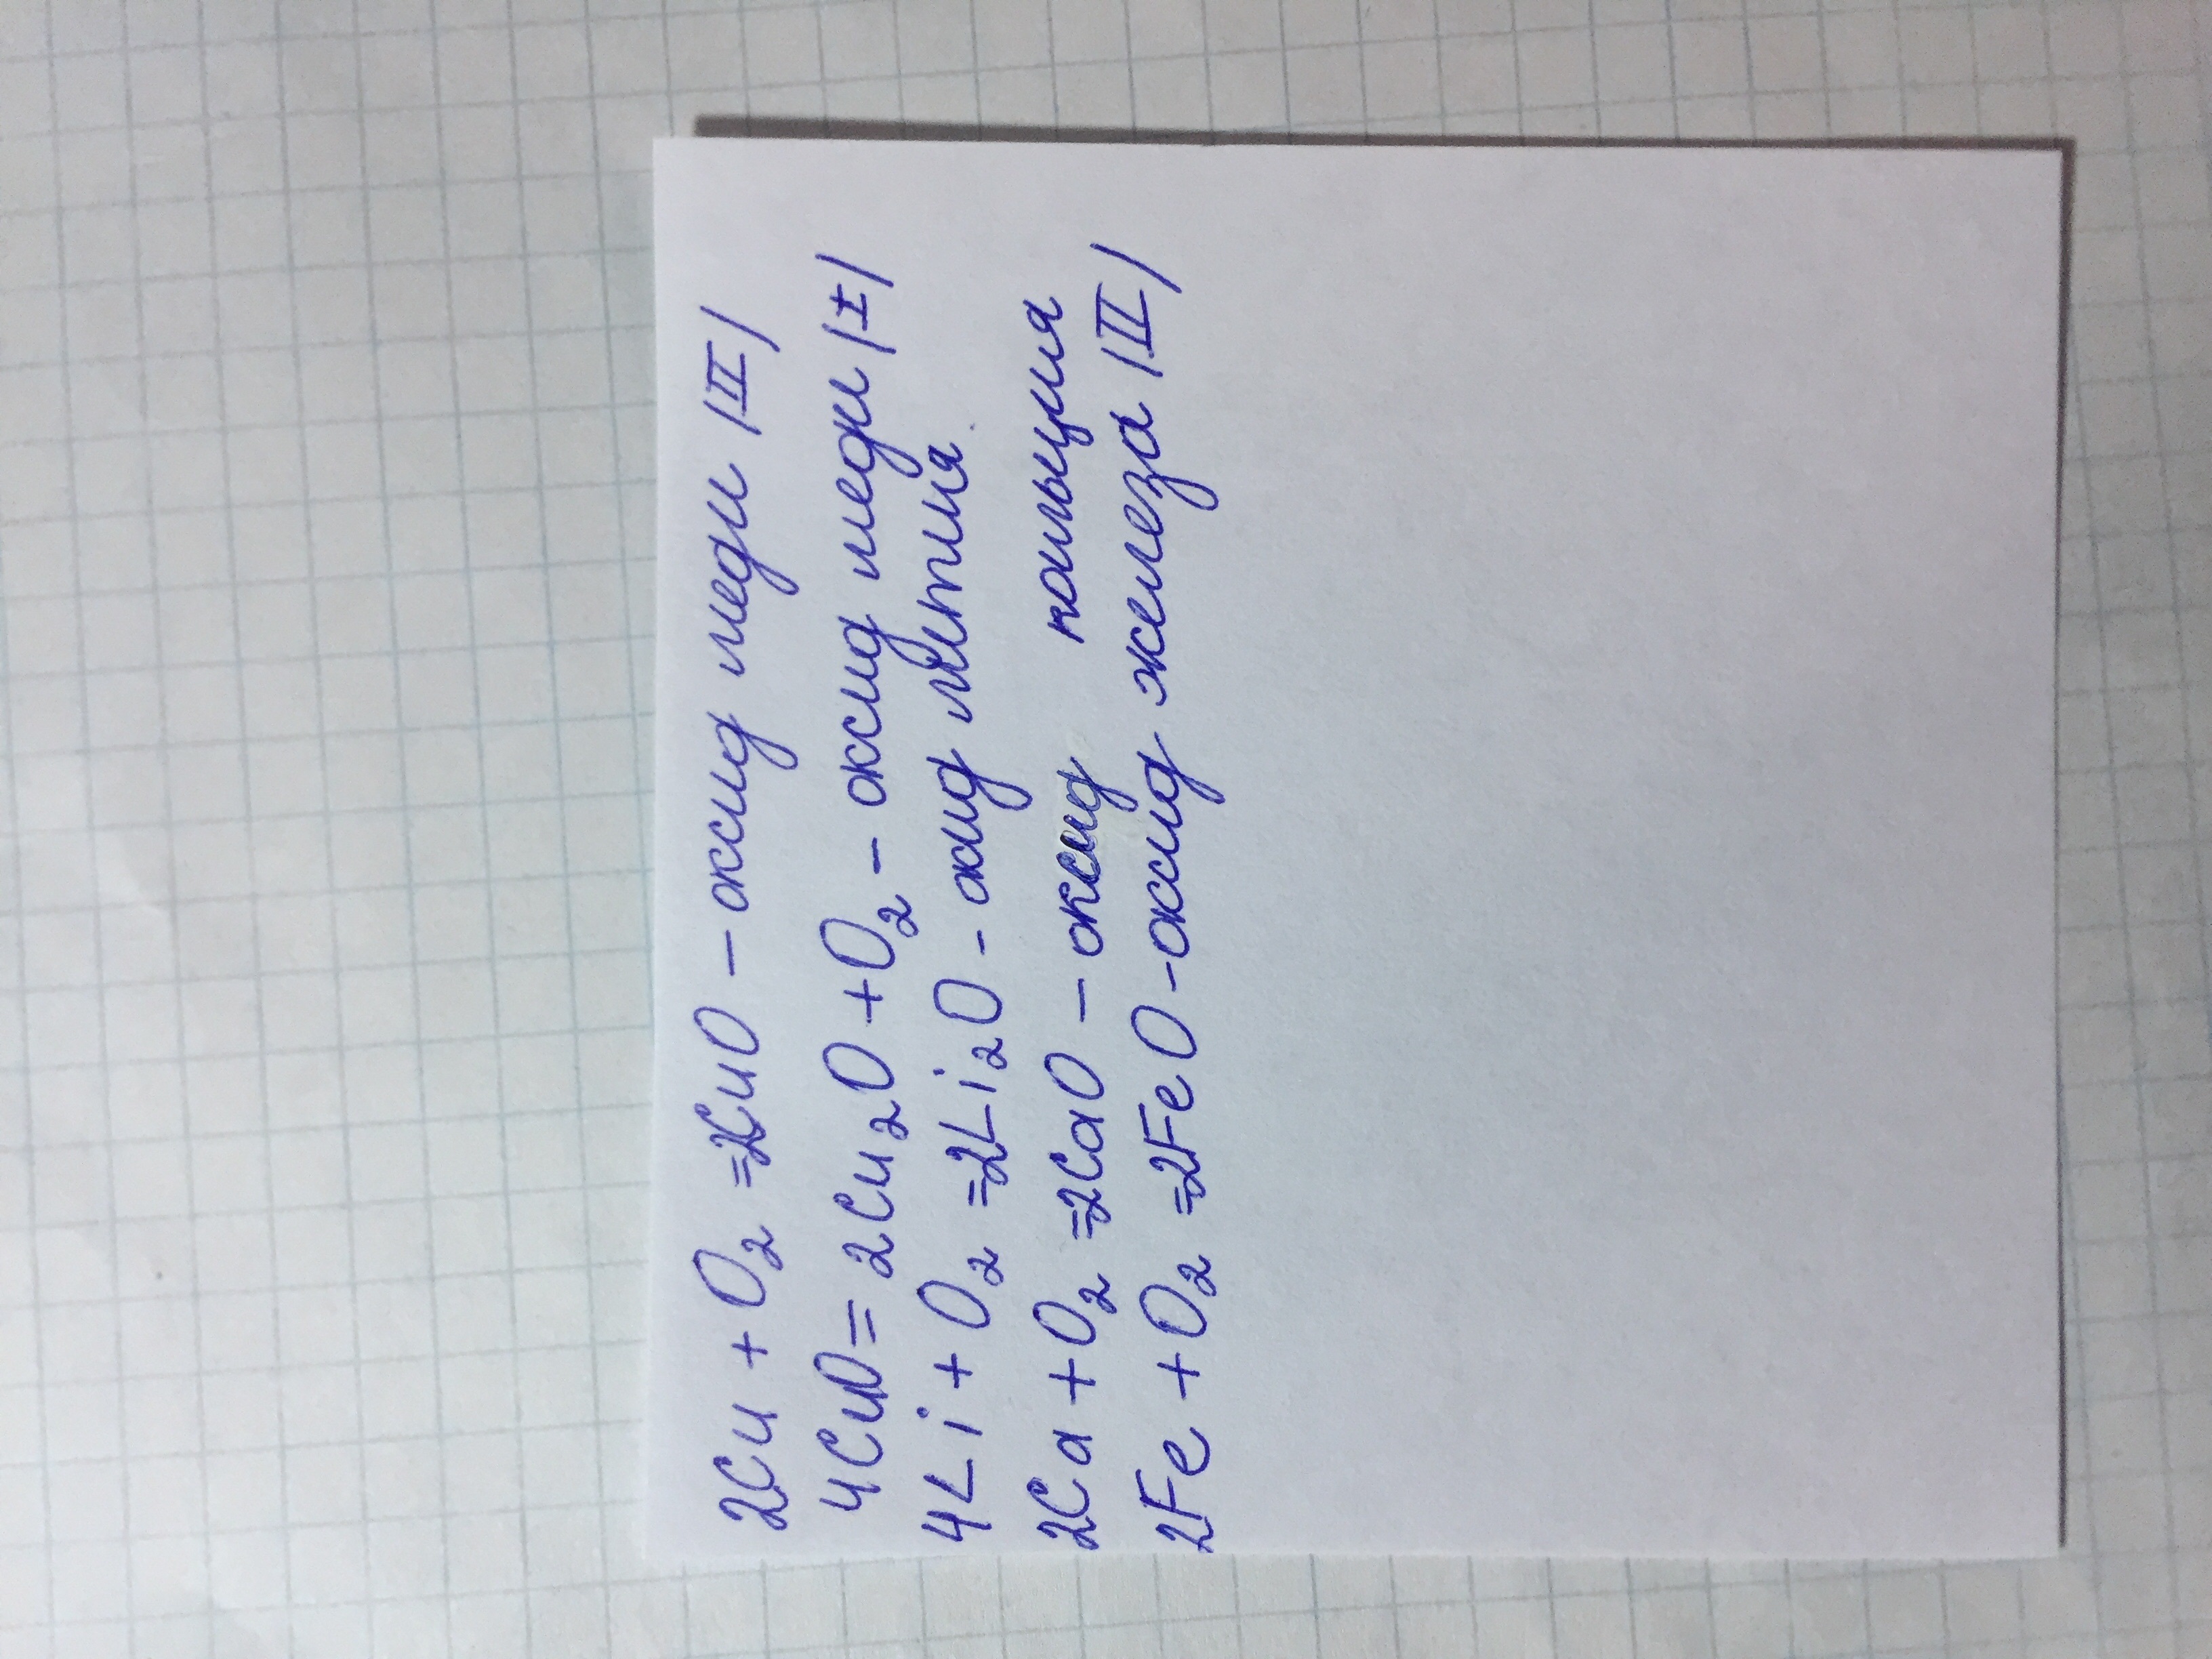 2Cu + O₂ = 2CuO - оксид меди (II)
4CuO = 2Cu₂O + O₂ - оксид меди (I)
4Li + O₂ = 2Li₂O - оксид лития
2Ca + O₂ = 2CaO - оксид кальция
2Fe + O₂ = 2FeO - оксид железа (II)